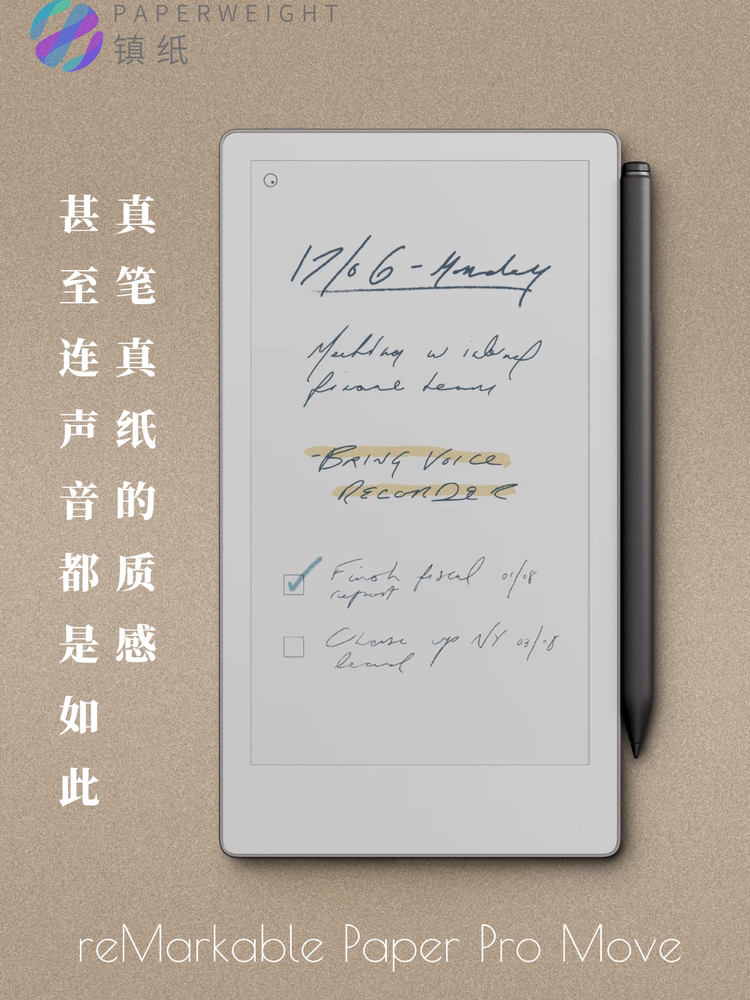 PAPERWEIGHT
镇纸
真笔真纸的质感
甚至连声音都是如此
17/06 - Monday
Meeting w internal
finance team
- BRING VOICE
RECORDER
Finish fiscal 01/08
report
Chase up NY 03/08
team
reMarkable Paper Pro Move